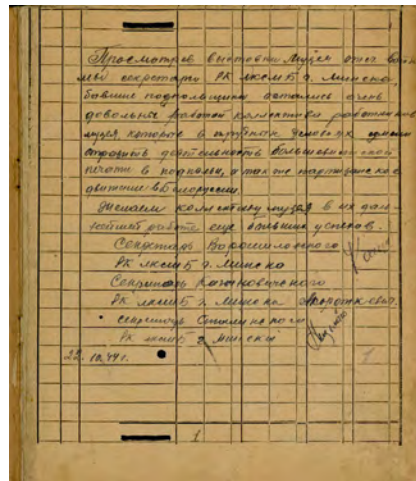 Просмотрев выставки музея
мы секретари РК ЛКСМБ г. Минска,
бывшие подпольщики остались очень
довольны работой коллектива работников
музея, которое в трудных условиях сумели
отразить деятельность большевистской
печати в подполье, а так же партизанское
движение в Белоруссии.
Желаем коллективу музея в их даль-
нейшей работе еще больших успехов.
Секретарь Ворошиловского
РК ЛКСМБ г. Минска
Секретарь Кагановичского
РК ЛКСМБ г. Минска
Секретарь Сталинского
РК ЛКСМБ г. Минска
22.10.44 г.
1